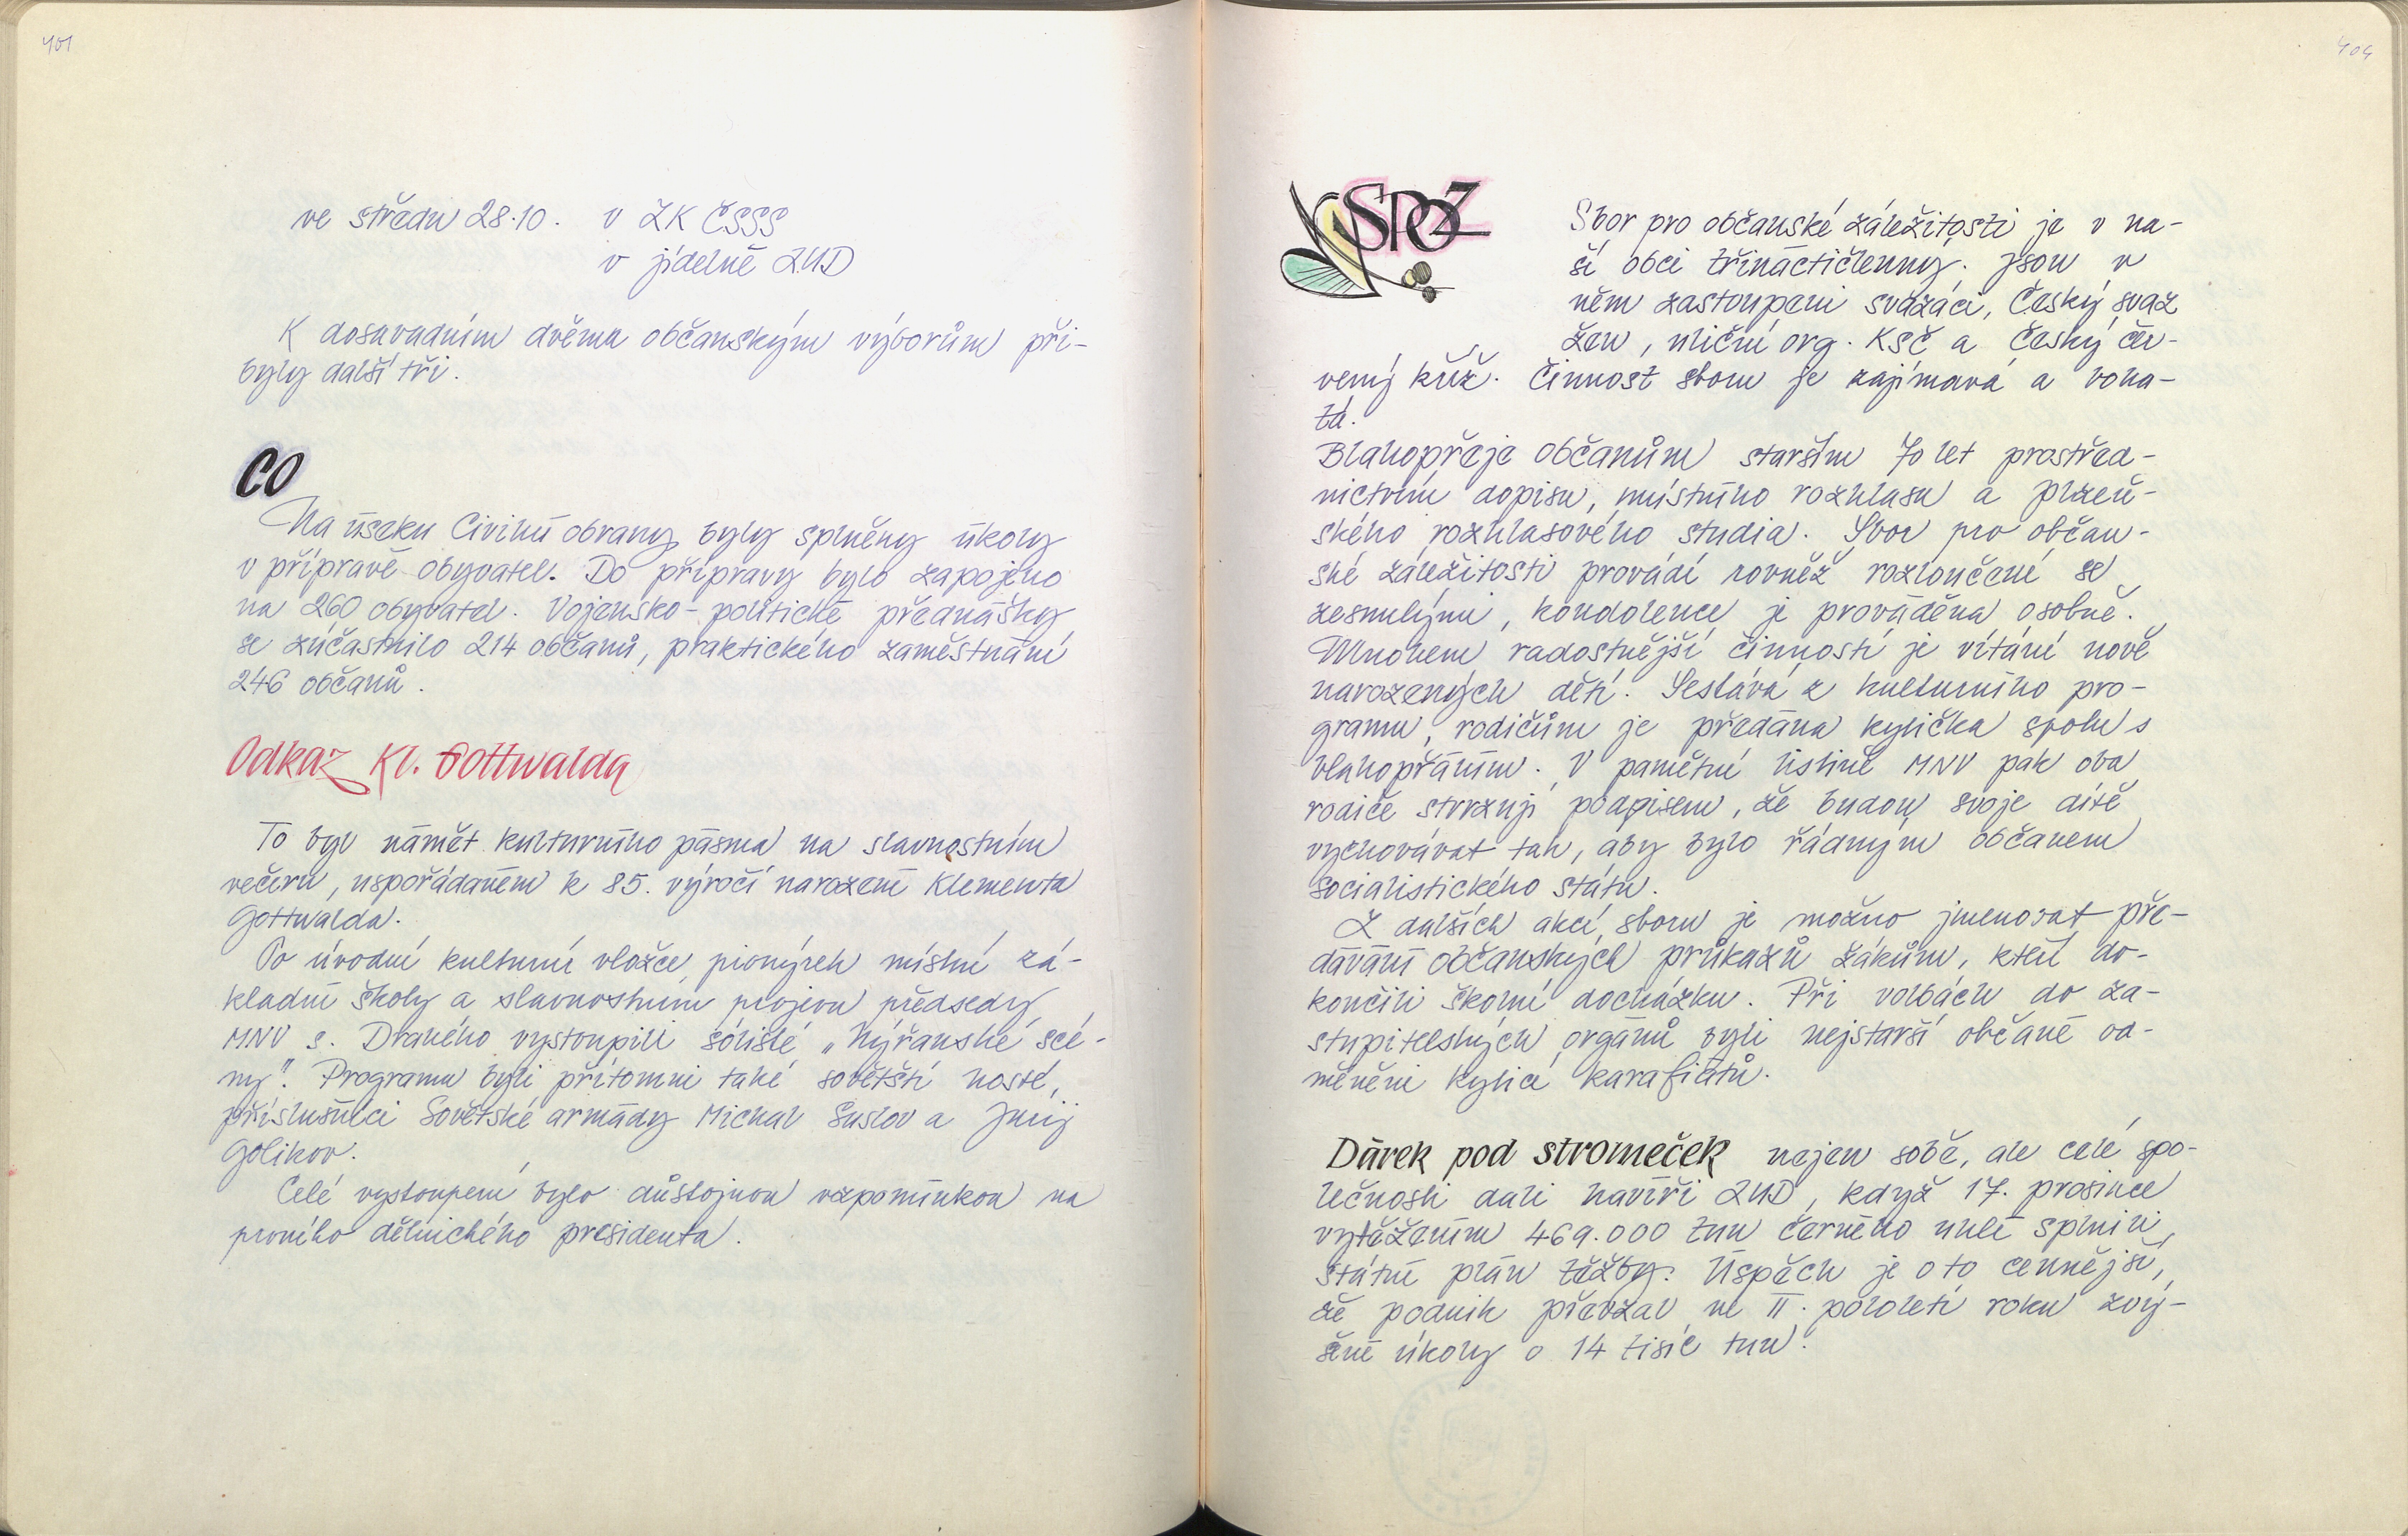 401
ve středu 28.10. v ZK ČSSS
v jídelně ZUD
K dosavadním dvěma občanským výborům při-
byly další tři.
CO
Na úseku Civilní obrany byly splněny úkoly
v přípravě obyvatel. Do přípravy bylo zapojeno
na 260 obyvatel. Vojensko-politické přednášky
se zúčastnilo 214 občanů, praktického zaměstnání
246 občanů.
Odkaz Kl. Gottwalda
To byl námět kulturního pásma na slavnostním
večeru, uspořádaném k 85. výročí narození Klementa
Gottwalda.
Po úvodní kulturní vložce pionýrek místní zá-
kladní školy a slavnostním projevu předsedy
MNV s. Draného vystoupili sólisté „Nýřanské scé-
ny". Programu byli přítomni také sovětští hosté,
příslušníci Sovětské armády Michal Suslov a Jurij
Golikov.
Celé vystoupení bylo důstojnou vzpomínkou na
prvního dělnického presidenta.
404
SPOZ
Sbor pro občanské záležitosti je v na-
ší obci třináctičlenný. Jsou v
něm zastoupeni svazáci, Český svaz
žen, uliční org. KSČ a Český čer-
vený kříž. Činnost sboru je zajímavá a boha-
tá.
Blahopřeje občanům starším 70 let prostřed-
nictvím dopisu, místního rozhlasu a plzeň-
ského rozhlasového studia. Sbor pro občan-
ské záležitosti provádí rovněž rozloučení se
zesnulými, kondolence je prováděna osobně.
Mnohem radostnější činností je vítání nově
narozených dětí. Sestává z kulturního pro-
gramu, rodičům je předána kytička spolu s
blahopřáním. V pamětní listině MNV pak oba
rodiče stvrzují podpisem, že budou svoje dítě
vychovávat tak, aby bylo řádným občanem
socialistického státu.
Z dalších akcí sboru je možno jmenovat pře-
dávání občanských průkazů žákům, kteří do-
končili školní docházku. Při volbách do za-
stupitelských orgánů byli nejstarší občané od-
měněni kyticí karafiátů.
Dárek pod stromeček nejen sobě, ale celé spo-
lečnosti dali havíři ZUD, když 17. prosince
vytěžením 469.000 tun černého uhlí splnili
státní plán těžby. Úspěch je o to cennější,
že podnik převzal ve II. pololetí roku zvý-
šené úkoly o 14 tisíc tun.